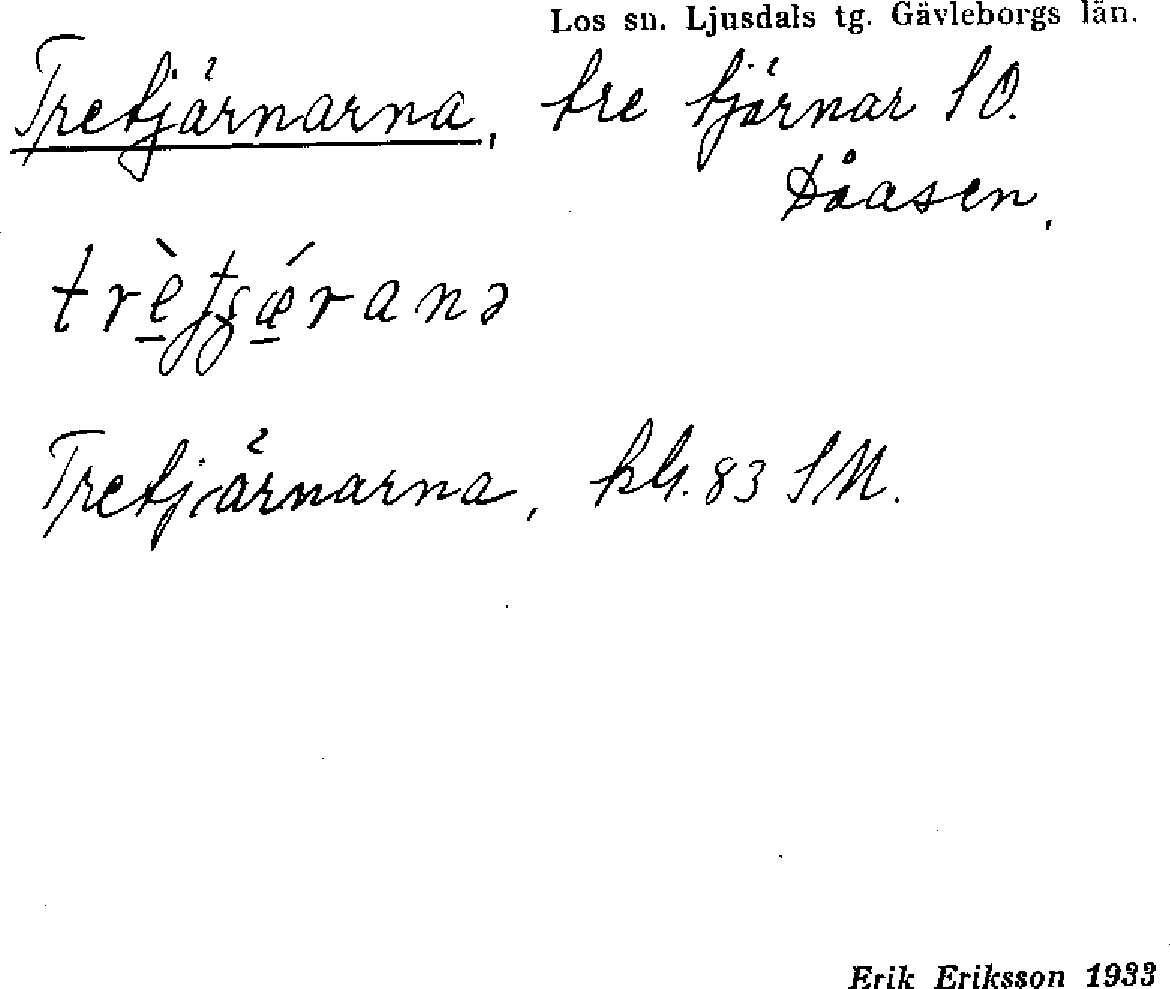 Los sn. Ljusdals tg. Gävleborgs län.
Tretjärnarna, tre tjärnar SO.
Dåasen.
Tretjärnarna, kbl. 83 SM.
Erik Eriksson 1933